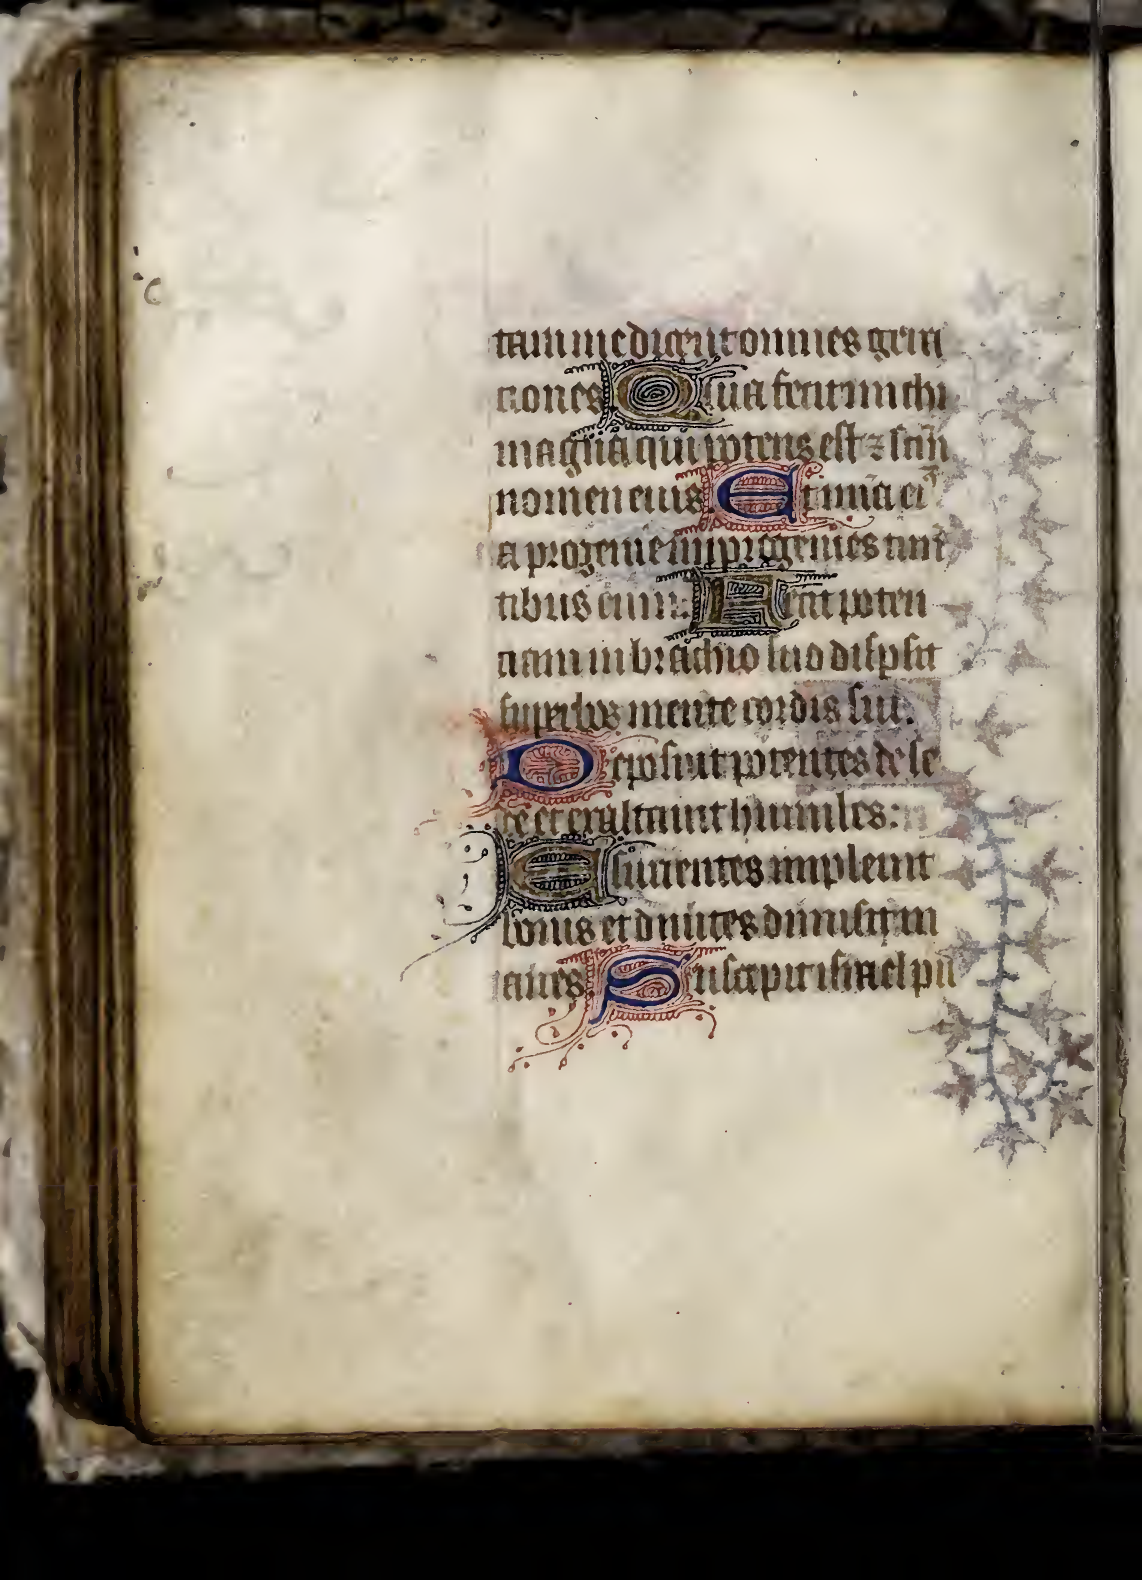 tam me dicent omnes gen̄
ciones Quia fecit michi
magna qui potens est ⁊ scm̄
nomen eius. Et mīa eiꝰ
a progenie in progenies tim̄
tibus eum: Fecit poten
ciam in brachio suo dispsit
superbos mente cordis sui.
Deposuit potentes de se
de et exaltauit humiles:
Esurientes impleuit
bonis et diuites dimisit in
anes. Suscepit israel pu